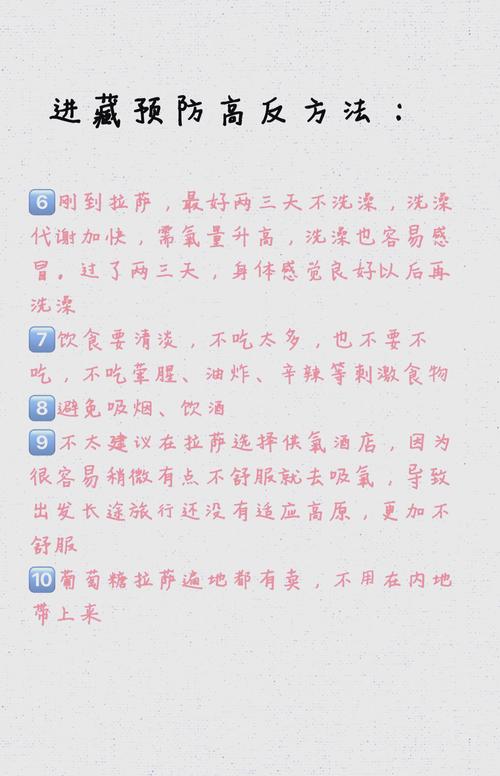 进藏预防高反方法：
6刚到拉萨，最好两三天不洗澡，洗澡
代谢加快，需氧量升高，洗澡也容易感
冒。过了两三天，身体感觉良好以后再
洗澡
7饮食要清淡，不吃太多，也不要不
吃，不吃荤腥、油炸、辛辣等刺激食物
8避免吸烟、饮酒
9不太建议在拉萨选择供氧酒店，因为
很容易稍微有点不舒服就去吸氧，导致
出发长途旅行还没有适应高原，更加不
舒服
10葡萄糖拉萨遍地都有卖，不用在内地
带上来